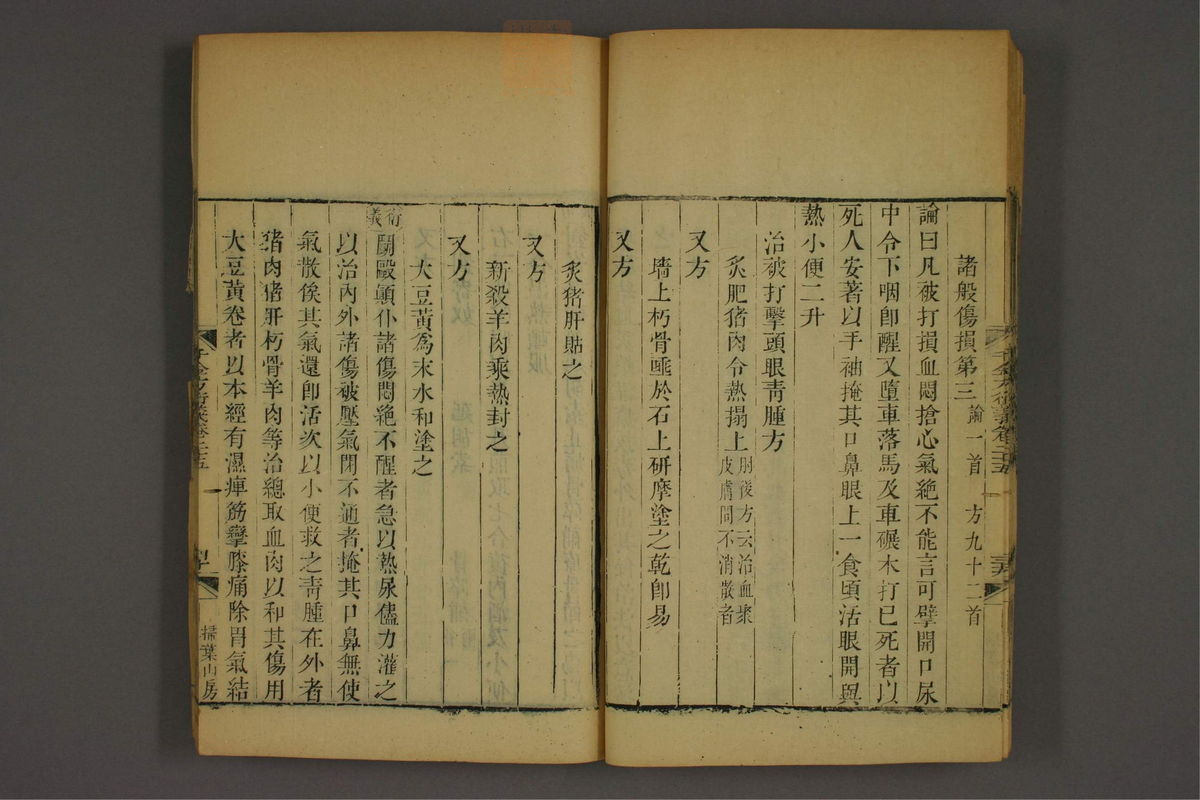 諸般傷損第三 論一首 方九十二首
論曰凡被打損血悶搶心氣絶不能言可擘開口尿
中令下咽卽醒又墮車落馬及車碾木打已死者以
死人安著以手袖掩其口鼻眼上一食頃活眼開與
熱小便二升
治被打擊頭眼靑腫方
炙肥猪肉令熱搨上 肘後方云治血聚皮膚間不消散者
又方
墻上朽骨唾於石上研摩塗之乾卽易
又方
炙猪肝貼之
又方
新殺羊肉乘熱封之
又方
大豆黃爲末水和塗之
衍義
鬭毆顚仆諸傷悶絶不醒者急以熱尿儘力灌之
以治內外諸傷被壓氣閉不通者掩其口鼻無使
氣散俟其氣還卽活次以小便救之靑腫在外者
猪肉猪肝朽骨羊肉等治總取血肉以和其傷用
大豆黃卷者以本經有濕痺筋攣膝痛除胃氣結
掃葉山房